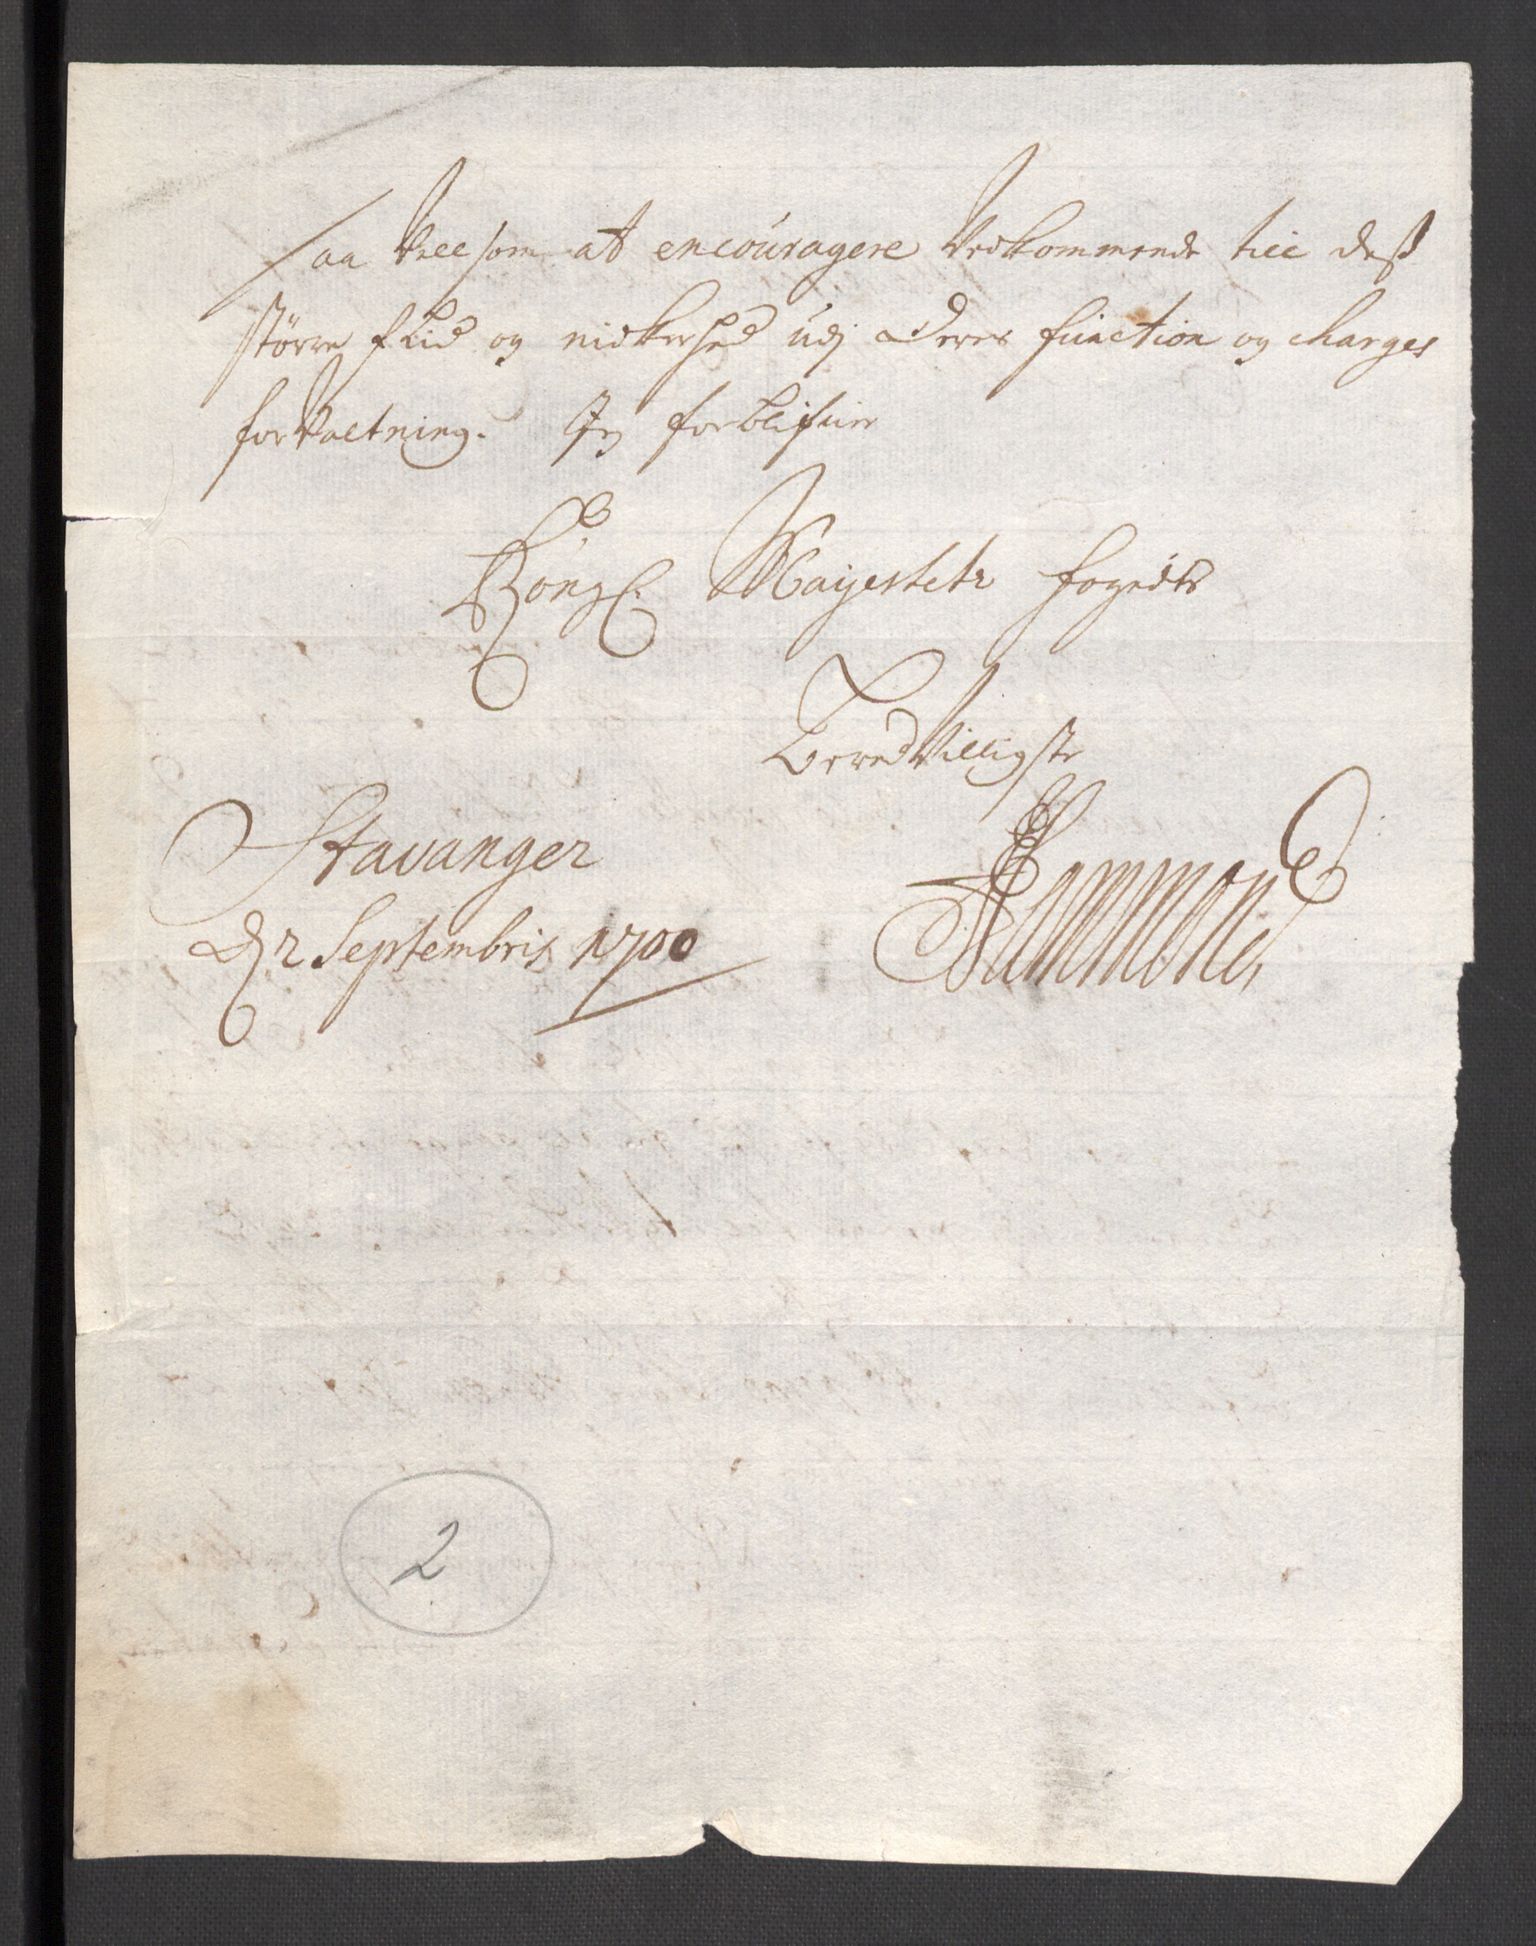 saa Vell som at encouragere Vedkommende till dess
større flid og nidkerhed udj deres function og charges
forvaltning. Jeg forblifuer
Kongl. Mayestetz fogedtz
beredvilligste
Stavanger
d 2 Septembris 1700
Hammond
2